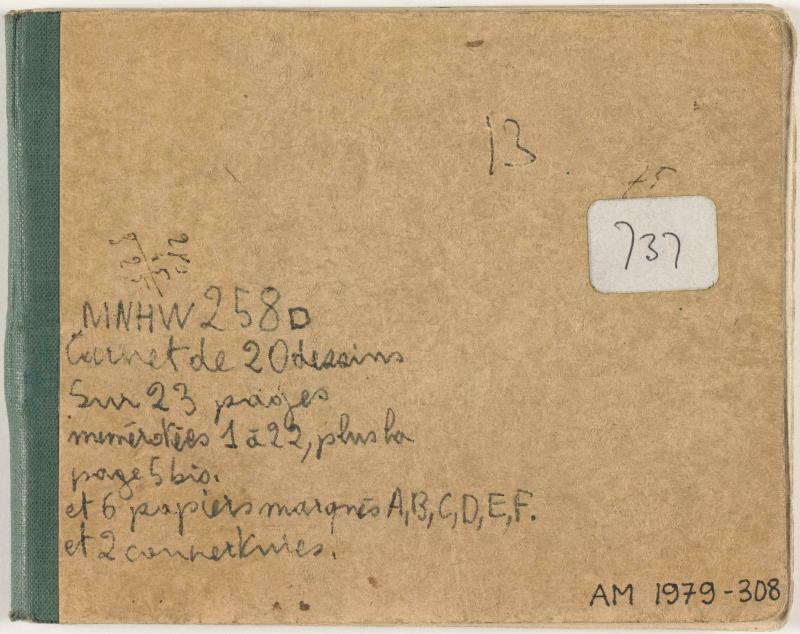 13
737
MNHW 258 D
Carnet de 20 dessins
Sur 23 pages
numérotées 1 à 22, plus la
page 5 bis.
et 6 papiers marqués A, B, C, D, E, F.
et 2 couvertures.
AM 1979-308